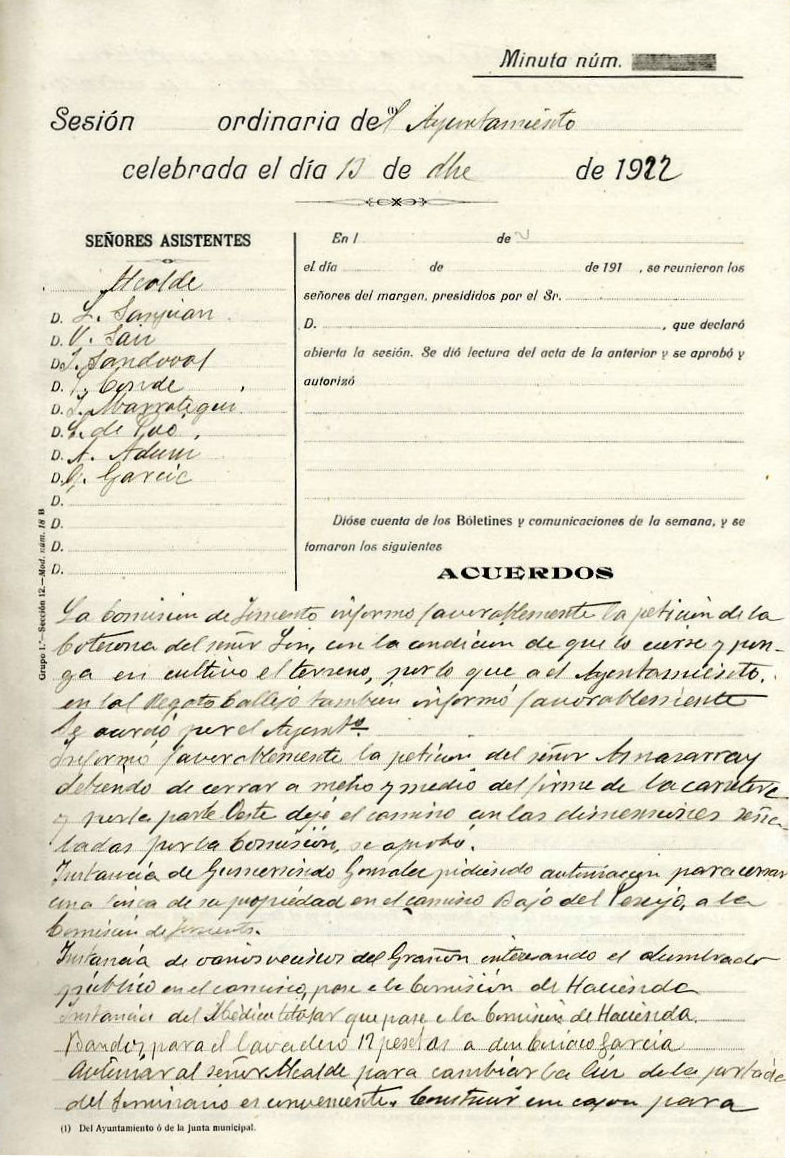 Minuta núm.
Sesión ordinaria del (1) Ayuntamiento
celebrada el día 13 de dbre de 1922
SEÑORES ASISTENTES
Alcalde
D. L. Sanjuan
D. V. Sair
D. J. Sandoval
D. Conde
D. J. Abarrategui
D. de
D. A. Aduri
D. G. García
D.
D.
D.
D.
En l de
el día de de 191 , se reunieron los
señores del margen, presididos por el Sr.
D. , que declaró
abierta la sesión. Se dió lectura del acta de la anterior y se aprobó y
autorizó
Dióse cuenta de los Boletines y comunicaciones de la semana, y se
tomaron los siguientes
ACUERDOS
La Comisión de Fomento informó favorablemente la petición de la
del señor con la condicion de que lo cierre y pon-
ga en cultivo el terreno, por lo que a el Ayentamiento.
en lal Regato Callejo tambien informó favorablemente
Se acordó por el Ayuntº
Informó favorablemente la peticion del señor
debiendo de cerrar a metro y medio del firme de la carretera
y por la parte Oeste deje el camino con las dimensiones seña-
ladas por la Comisión, se aprobó.
Instancia de Gumersindo Gonzalez pidiendo autorizacion para cerrar
una finca de su propiedad en el camino Bajo del a la
Comisión de Fomento.
Instancia de varios vecinos del Grañon interesando el alumbrado
público en el camino, pase a la Comisión de Hacienda
Instancia del Médico titular que pase a la Comision de Hacienda.
para el lavadero 12 pesetas a don Ciriaco García
Autorizar al señor Alcalde para cambiar la luz de la portada
del Seminario es conveniente. Construir un cajon para
Grupo 1.º—Sección 12.—Mod. núm. 18 B
(1) Del Ayuntamiento ó de la Junta municipal.